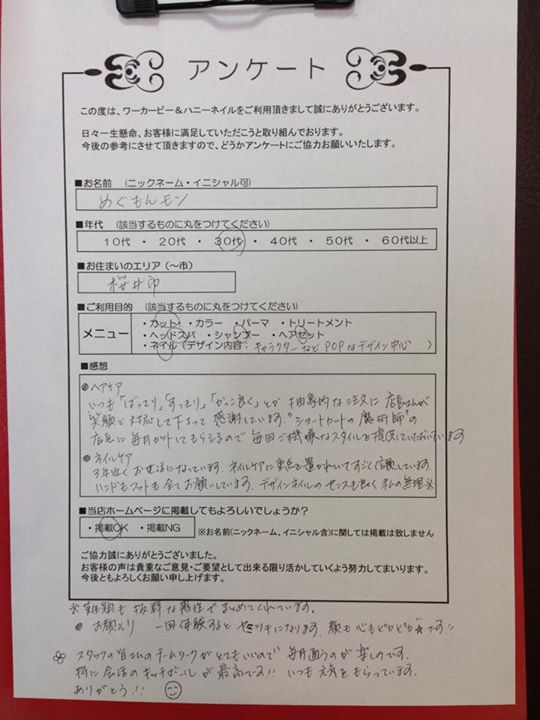 アンケート
この度は、ワーカービー&ハニーネイルをご利用頂きまして誠にありがとうございます。
日々一生懸命、お客様に満足していただこうと取り組んでおります。
今後の参考にさせて頂きますので、どうかアンケートにご協力お願いいたします。
■お名前 (ニックネーム・イニシャル可)
めぐもんモン
■年代 (該当するものに丸をつけてください)
10代 ・ 20代 ・ 30代 ・ 40代 ・ 50代 ・ 60代以上
■お住まいのエリア(~市)
桜井市
■ご利用目的 (該当するものに丸をつけてください)
メニュー
・カット ・カラー ・パーマ ・トリートメント
・ヘッドスパ ・シャンプー ・ヘアセット
・ネイル(デザイン内容: キャラクターなどPOPなデザイン中心 )
■感想
●ヘアケア
いつも「ばっさり」「すっきり」「かっこ良く」とか抽象的な注文に店長さんが
笑顔で対応して下さって感謝しています。"ショートカットの魔術師"の
店長に毎月カットしてもらえるので毎回ご機嫌なスタイルを提供していただいています
●ネイルケア
3年近くお世話になっています。ネイルケアに重点を置かれていてすごく信頼しています。
ハンドもフットも全てお願いしています。デザインネイルのセンスも良く私の無理※
■当店ホームページに掲載してもよろしいでしょうか?
・掲載OK ・掲載NG ※お名前(ニックネーム、イニシャル含)に関しては掲載は致しません
ご協力誠にありがとうございました。
お客様の声は貴重なご意見・ご要望として出来る限り活かしていくよう努力してまいります。
今後ともよろしくお願い申し上げます。
※難題も抜群な感性でまとめてくれています。
● お顔そり 一回体験するとヤミツキになります。顔も心もピカピカ★です!!
スタッフの皆さんのチームワークがとてもいいので毎月通うのが楽しみです。
特に会話のキャッチボールが最高です!! いつも元気をもらっています。
ありがとう!!